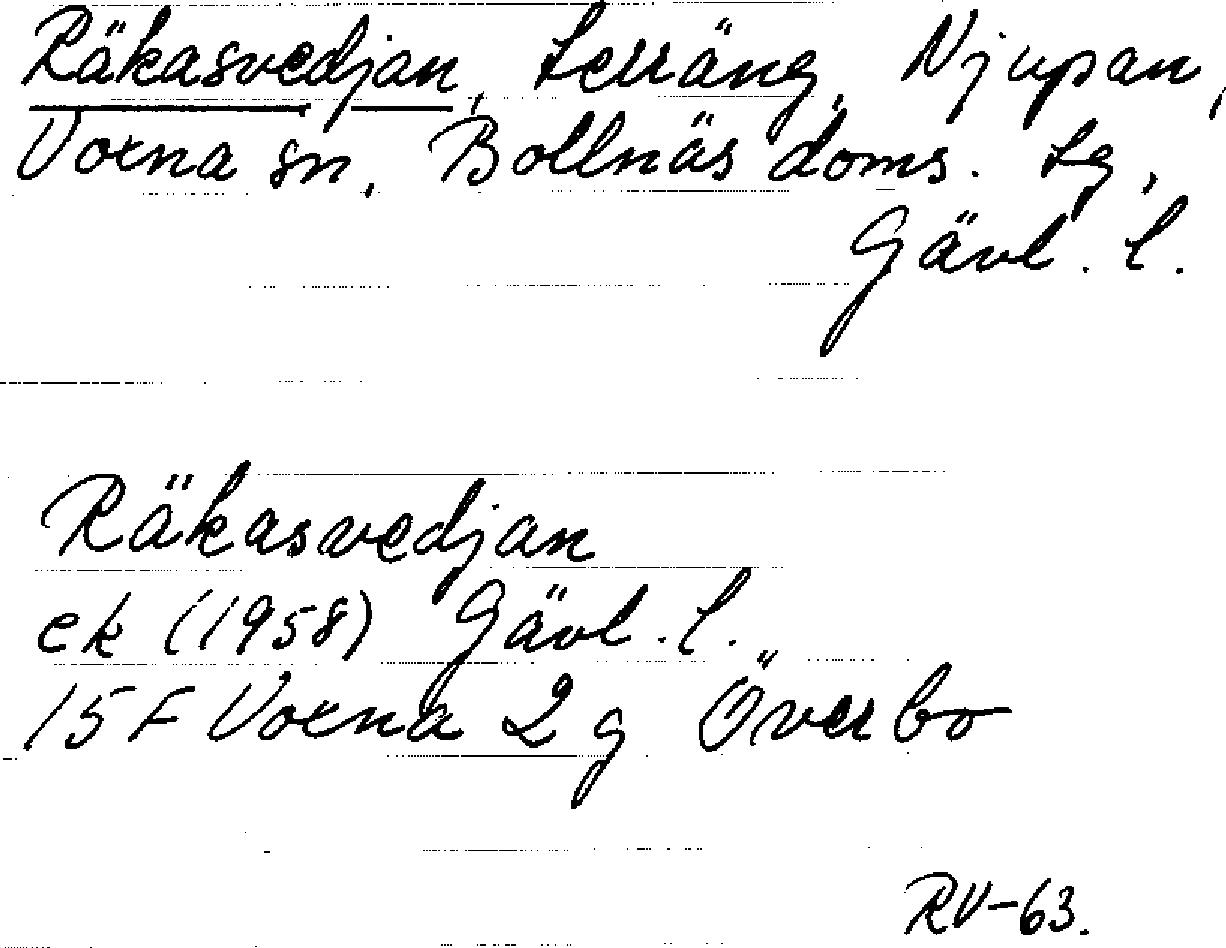 Räkasvedjan, terräng, Njupan,
Voxna sn, Bollnäs doms. tg,
Gävl. l.
Räkasvedjan
ek (1958) Gävl. l.
15 F Voxna 2 g Överbo
RV-63.